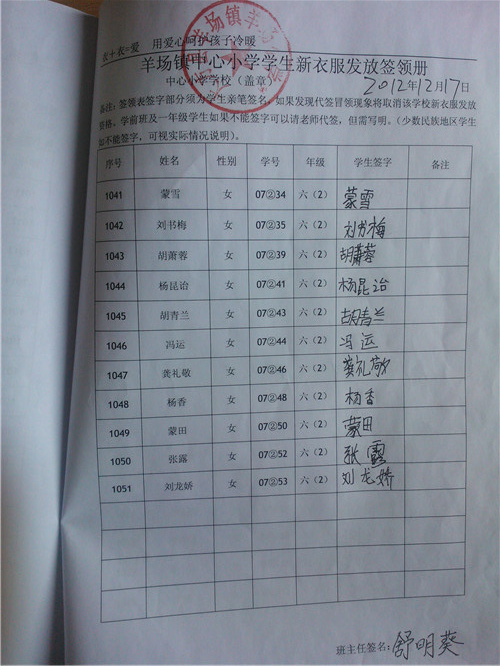 衣+衣=爱 用爱心呵护孩子冷暖
羊场镇中心小学学生新衣服发放签领册
中心小学学校（盖章） 2012年12月17日
备注：签领表签字部分须为学生亲笔签名，如果发现代签冒领现象将取消该学校新衣服发放
资格。学前班及一年级学生如果不能签字可以请老师代签，但需写明。（少数民族地区学生
如不能签字，可视实际情况说明）。
序号 姓名 性别 学号 年级 学生签字 备注
1041 蒙雪 女 07②34 六（2） 蒙雪
1042 刘书梅 女 07②35 六（2） 刘书梅
1043 胡萧蓉 女 07②39 六（2） 胡萧蓉
1044 杨昆诒 女 07②41 六（2） 杨昆诒
1045 胡青兰 女 07②43 六（2） 胡青兰
1046 冯运 女 07②44 六（2） 冯运
1047 龚礼敬 女 07②46 六（2） 龚礼敬
1048 杨香 女 07②48 六（2） 杨香
1049 蒙田 女 07②50 六（2） 蒙田
1050 张露 女 07②52 六（2） 张露
1051 刘龙娇 女 07②53 六（2） 刘龙娇
班主任签名：舒明葵